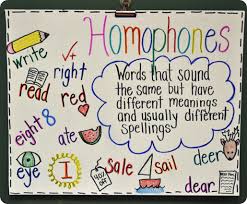 Homophones
write
right
read
red
eight 8
ate
eye
I
sale
sail
deer
dear
Words that sound
the same but have
different meanings
and usually different
spellings